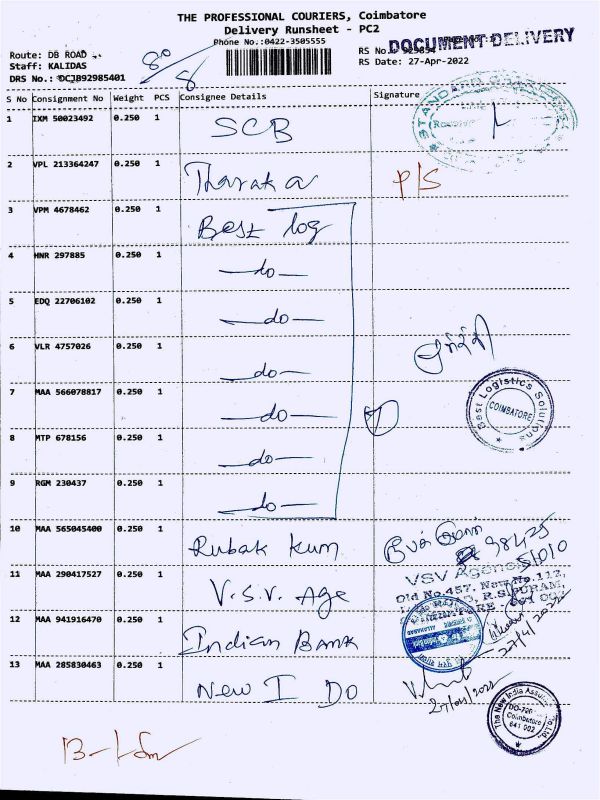 THE PROFESSIONAL COURIERS, Coimbatore
Delivery Runsheet - PC2
Phone No.:0422-3505555
DOCUMENT DELIVERY
Route: DB ROAD
Staff: KALIDAS
DRS No.: DCJB92985401
80/8
RS No.:
RS Date: 27-Apr-2022
S No Consignment No Weight PCS Consignee Details Signature
1 IXM 50023492 0.250 1 SCB
2 VPL 213364247 0.250 1 Tharaka P/S
3 VPM 4678462 0.250 1 Best log
4 HNR 297885 0.250 1 -do-
5 EDQ 22706102 0.250 1 -do-
6 VLR 4757026 0.250 1 -do-
7 MAA 566078817 0.250 1 -do-
Best Logistics Solutions
COIMBATORE
8 MTP 678156 0.250 1 -do-
9 RGM 230437 0.250 1 -do-
10 MAA 565045400 0.250 1 Rubak kum
98425
51010
11 MAA 290417527 0.250 1 V.S.V. Age
VSV Agencies
Old No.457, New No.112,
R.S.PURAM,
12 MAA 941916470 0.250 1 Indian Bank
27/4/2022
13 MAA 285830463 0.250 1 New I DO
27/04/2022
The New India Assu Co. Ltd.
DO-720
Coimbatore
641 002